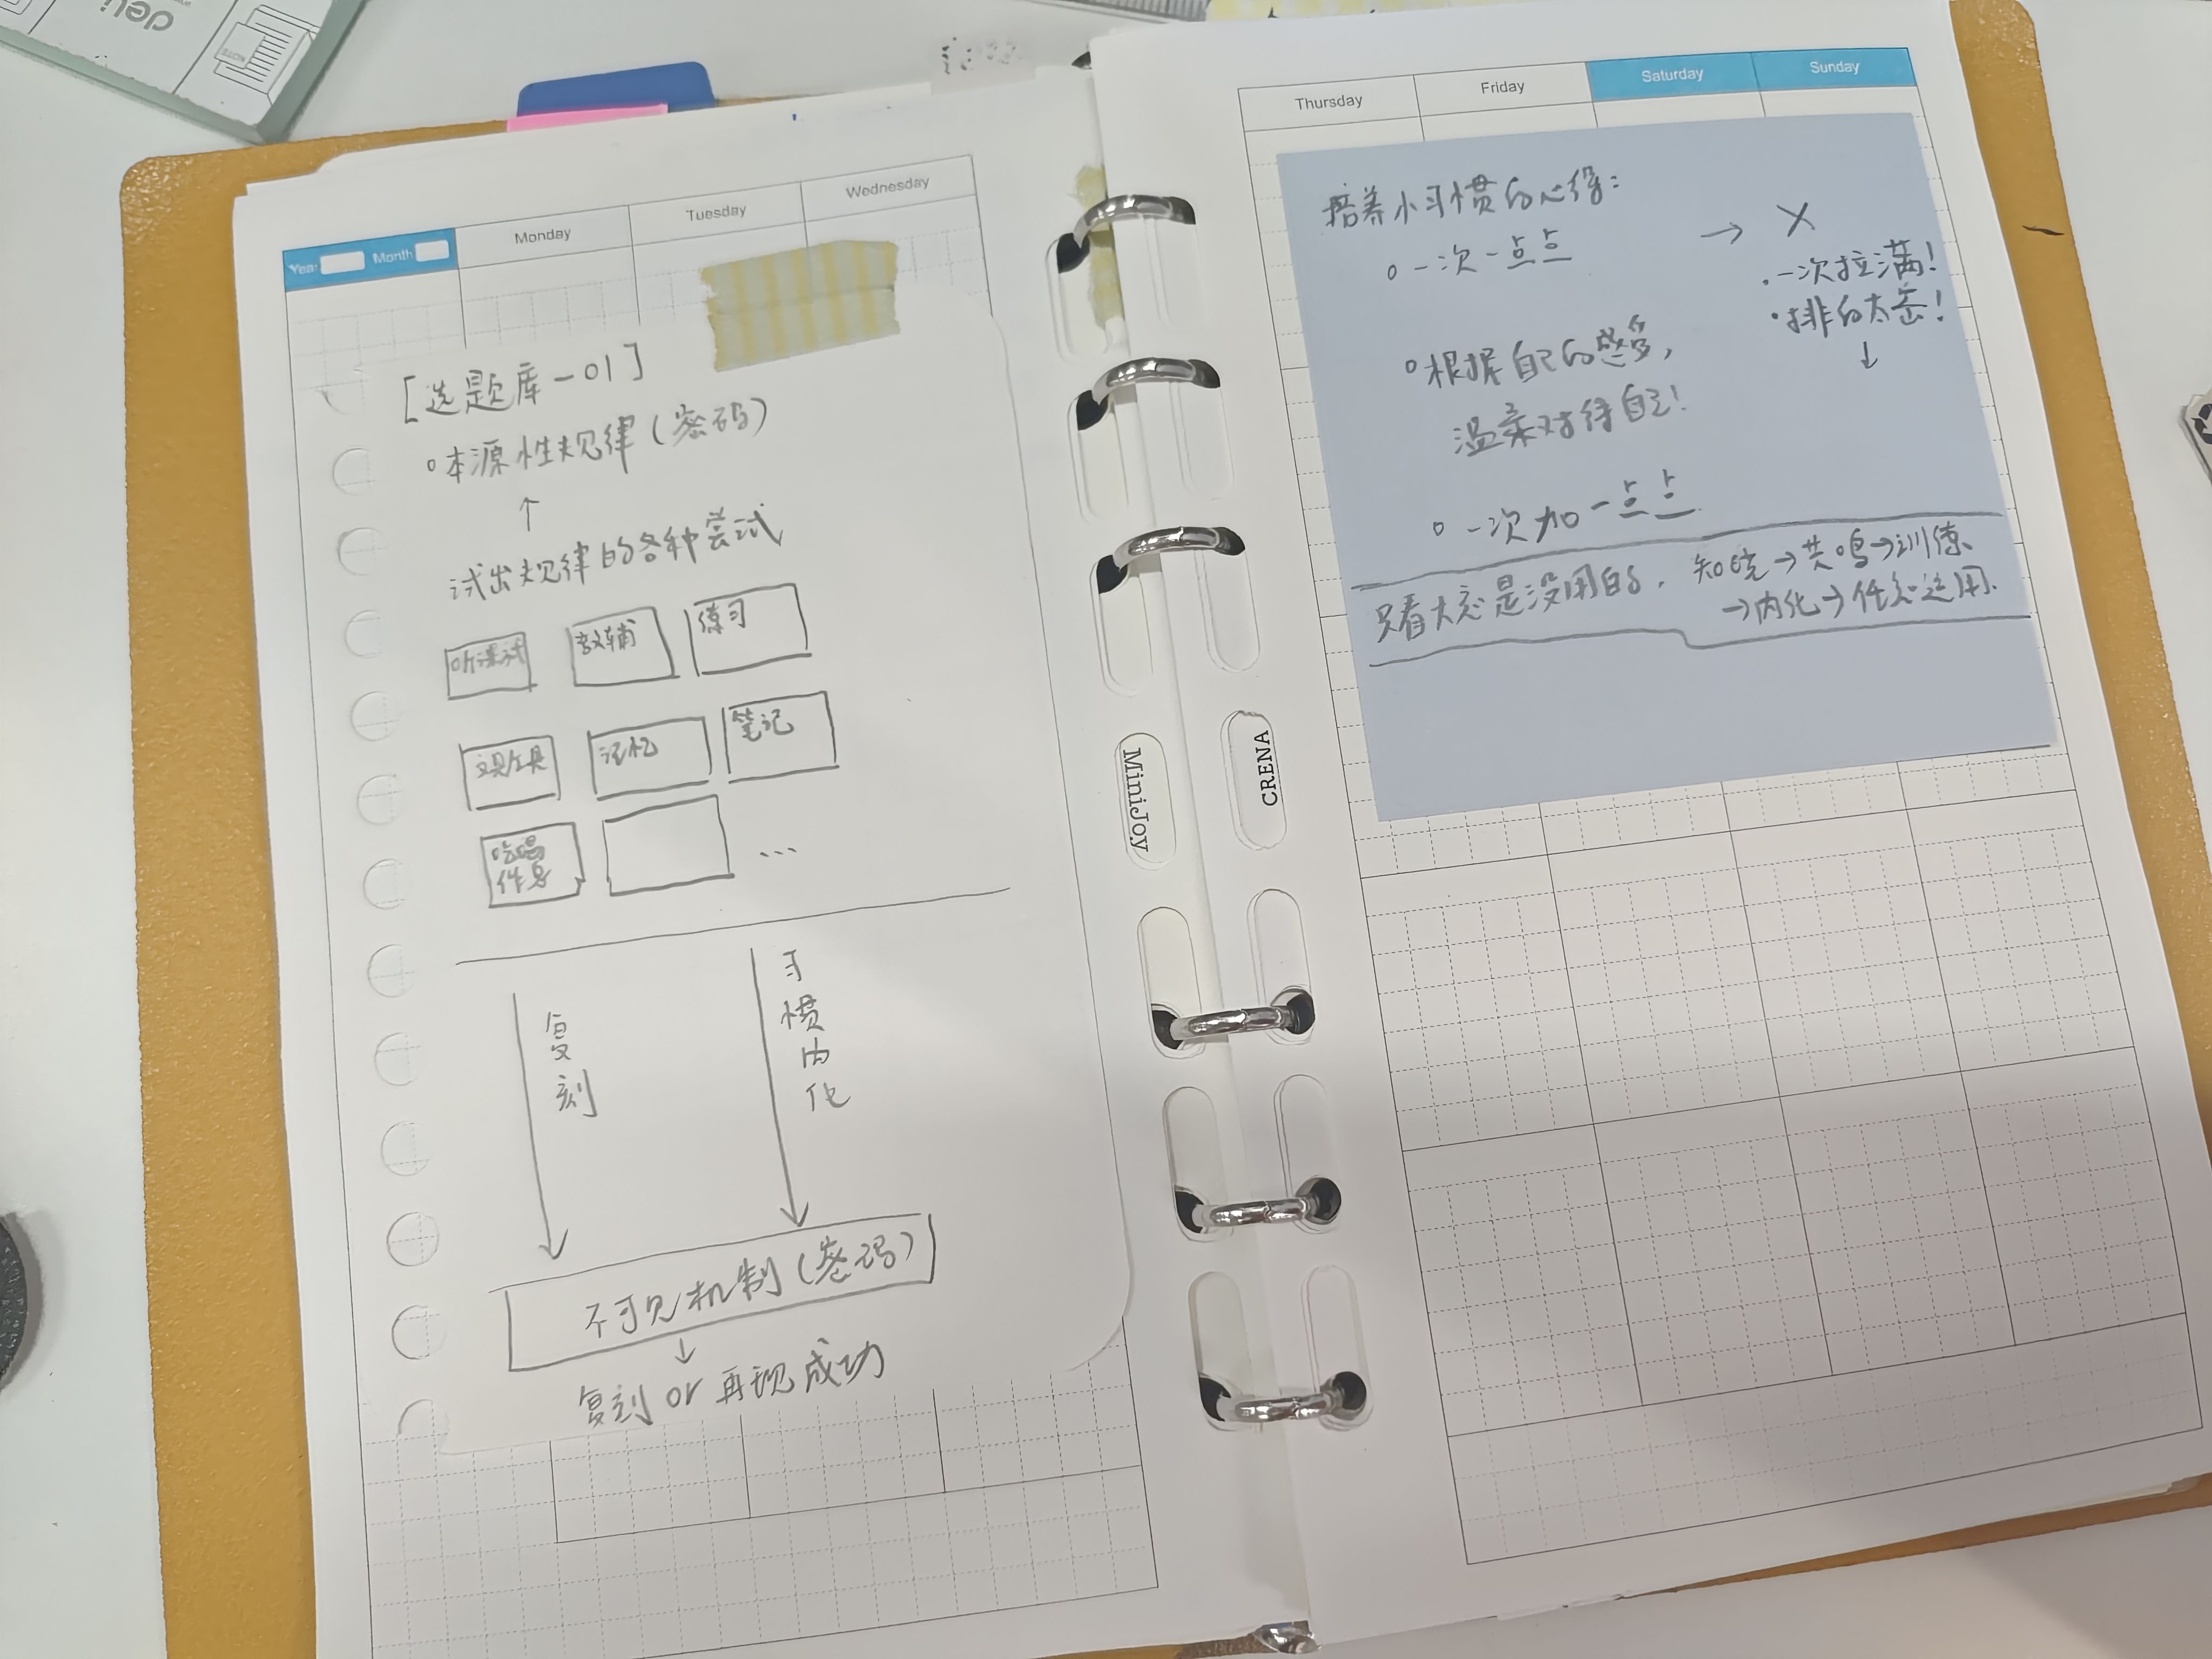 deli
NOTE
Year Month Monday Tuesday Wednesday
[选题库-01]
本源性规律(密码)
↑
试出规律的各种尝试
听课法 教辅 练习
文具工具 记忆 笔记
吃喝
作息
...
复刻
习惯内化
不可见机制(密码)
↓
复刻 or 再现成功
MiniJoy
CRENA
Thursday Friday Saturday Sunday
培养小习惯的心得:
一次一点点 → ×
·一次拉满!
·排的太密!
↓
根据自己的感受,
温柔对待自己!
一次加一点点
只看大意是没用的. 知晓→共鸣→训练
→内化→任意运用.